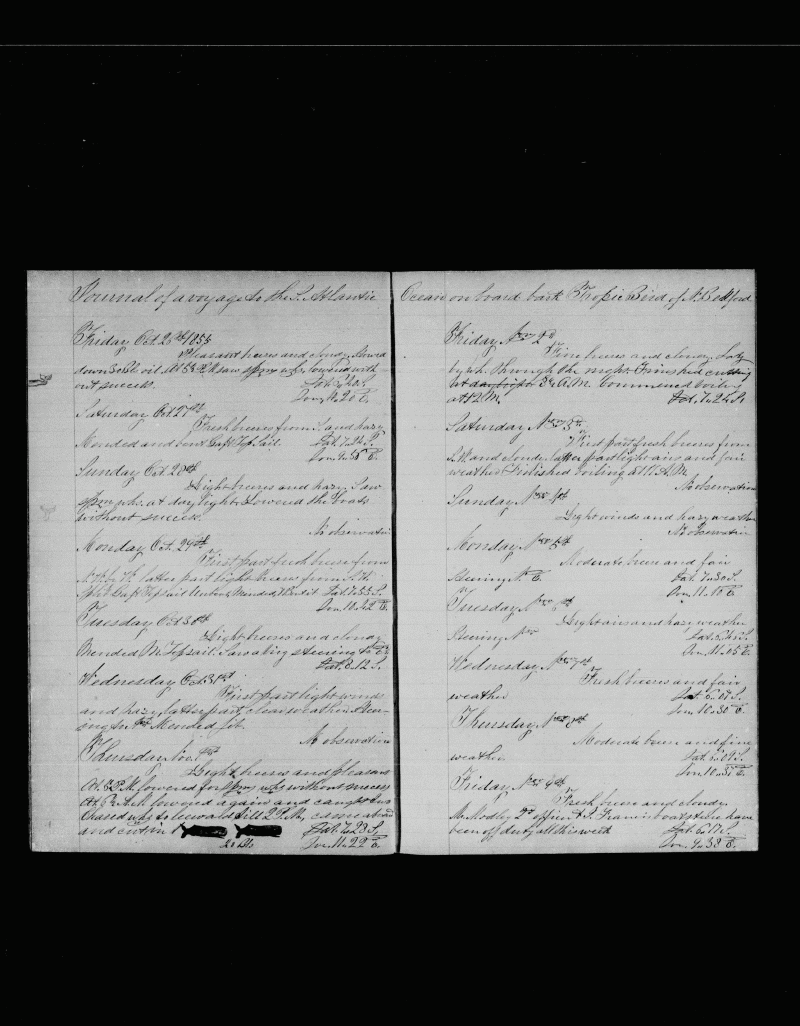 Journal of a voyage to the S. Atlantic
Friday Oct. 26th 1855
Pleasant breeze and cloudy. Stowed
down oil. At saw sperm whs. lowered with
out success. Lat.
Lon. E.
Saturday Oct. 27th
Fresh breeze from S. and hazy
Mended and bent Topsail. Lat. S.
Lon. 9 E.
Sunday Oct. 28th
Light breeze and hazy. Saw
sperm whs. at day light. Lowered the boats
without success.
No observation
Monday Oct. 29th
First part fresh breeze from
latter part light breeze from
Split Topsail Mended & bent it Lat. 7.33 S.
Lon. 10.42 E.
Tuesday Oct 30th
Light breeze and cloudy
Mended M. Topsail. Saw a brig steering
Lat. 8.12 S.
Wednesday Oct. 31st
First part light winds
and hazy, latter part, clear weather. Steer-
ing Mended jib.
No observation
Thursday Nov. 1st
Light breeze and pleasant
At P.M. lowered for sperm whs without success
At A.M. lowered again and caught two
Chased whs to leeward till 2 P.M. came aboard
and cut in Lat. 7.28 S.
Lon. 11.22 E.
Ocean on board bark Tropic Bird of N. Bedford
Friday Nov 2d
Fine breeze and cloudy. Lay
by wh. through the night. Finished cutting
at A.M. commenced boiling
at 12 M. Lat. 7.24 S.
Saturday Nov 3d
First part fresh breeze from
S.W. and cloudy, latter part light airs and fair
weather. Finished boiling at A.M.
No observation
Sunday Nov 4th
Light winds and hazy weather
No observation
Monday Nov 5th
Moderate breeze and fair
Steering N. E. Lat. 7.30 S.
Lon. 11.15 E.
Tuesday Nov 6th
Light airs and hazy weather
Steering Lat. S.
Lon. 11.05 E.
Wednesday Nov 7th
Fresh breeze and fair
weather Lat. 6.07 S.
Lon. 10.30 E.
Thursday Nov 8th
Moderate breeze and fine
weather Lat. S.
Lon. 10 E.
Friday Nov 9th
Fresh breeze and cloudy.
Mr. 2d officer & Francis boatsteerer have
been off duty all this week Lat. 6.17 S.
Lon. 9.38 E.